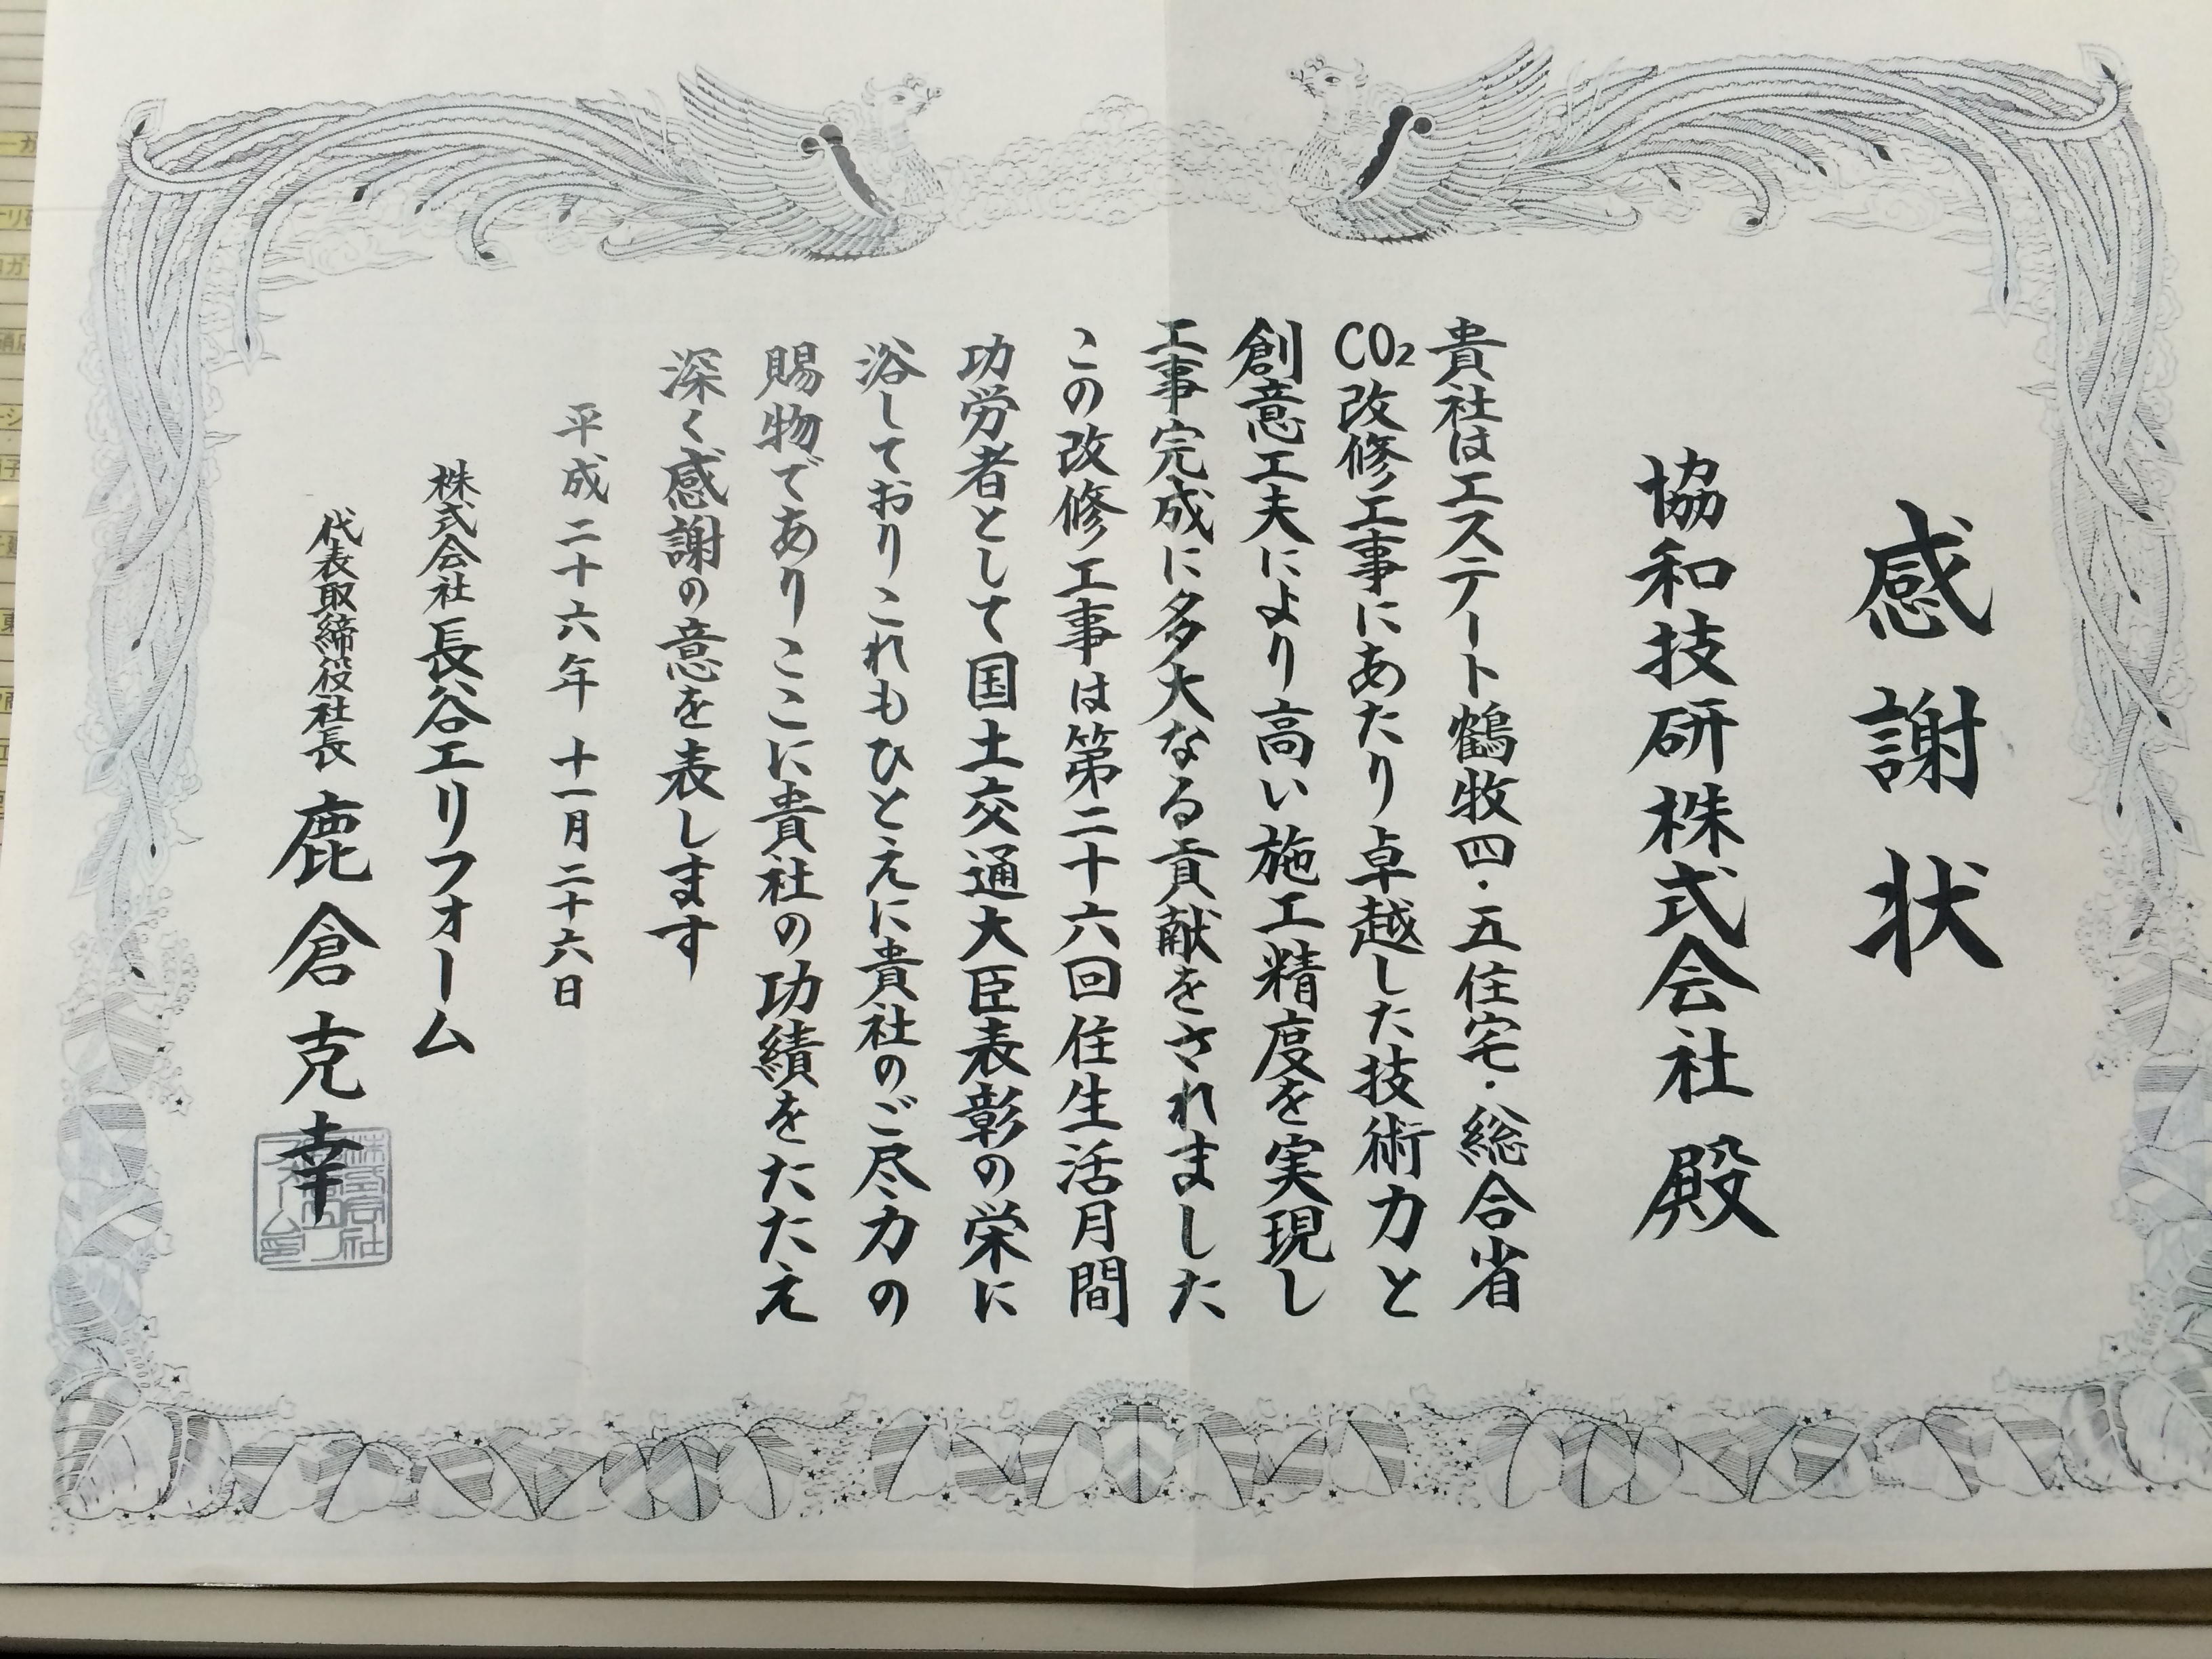 感謝状
協和技研株式会社 殿
貴社はエステート鶴牧四・五住宅・総合省
CO2改修工事にあたり卓越した技術力と
創意工夫により高い施工精度を実現し
工事完成に多大なる貢献をされました
この改修工事は第二十六回住生活月間
功労者として国土交通大臣表彰の栄に
浴しておりこれもひとえに貴社のご尽力の
賜物でありここに貴社の功績をたたえ
深く感謝の意を表します
平成二十六年 十一月二十六日
株式会社長谷工リフォーム
代表取締役社長 鹿倉克幸